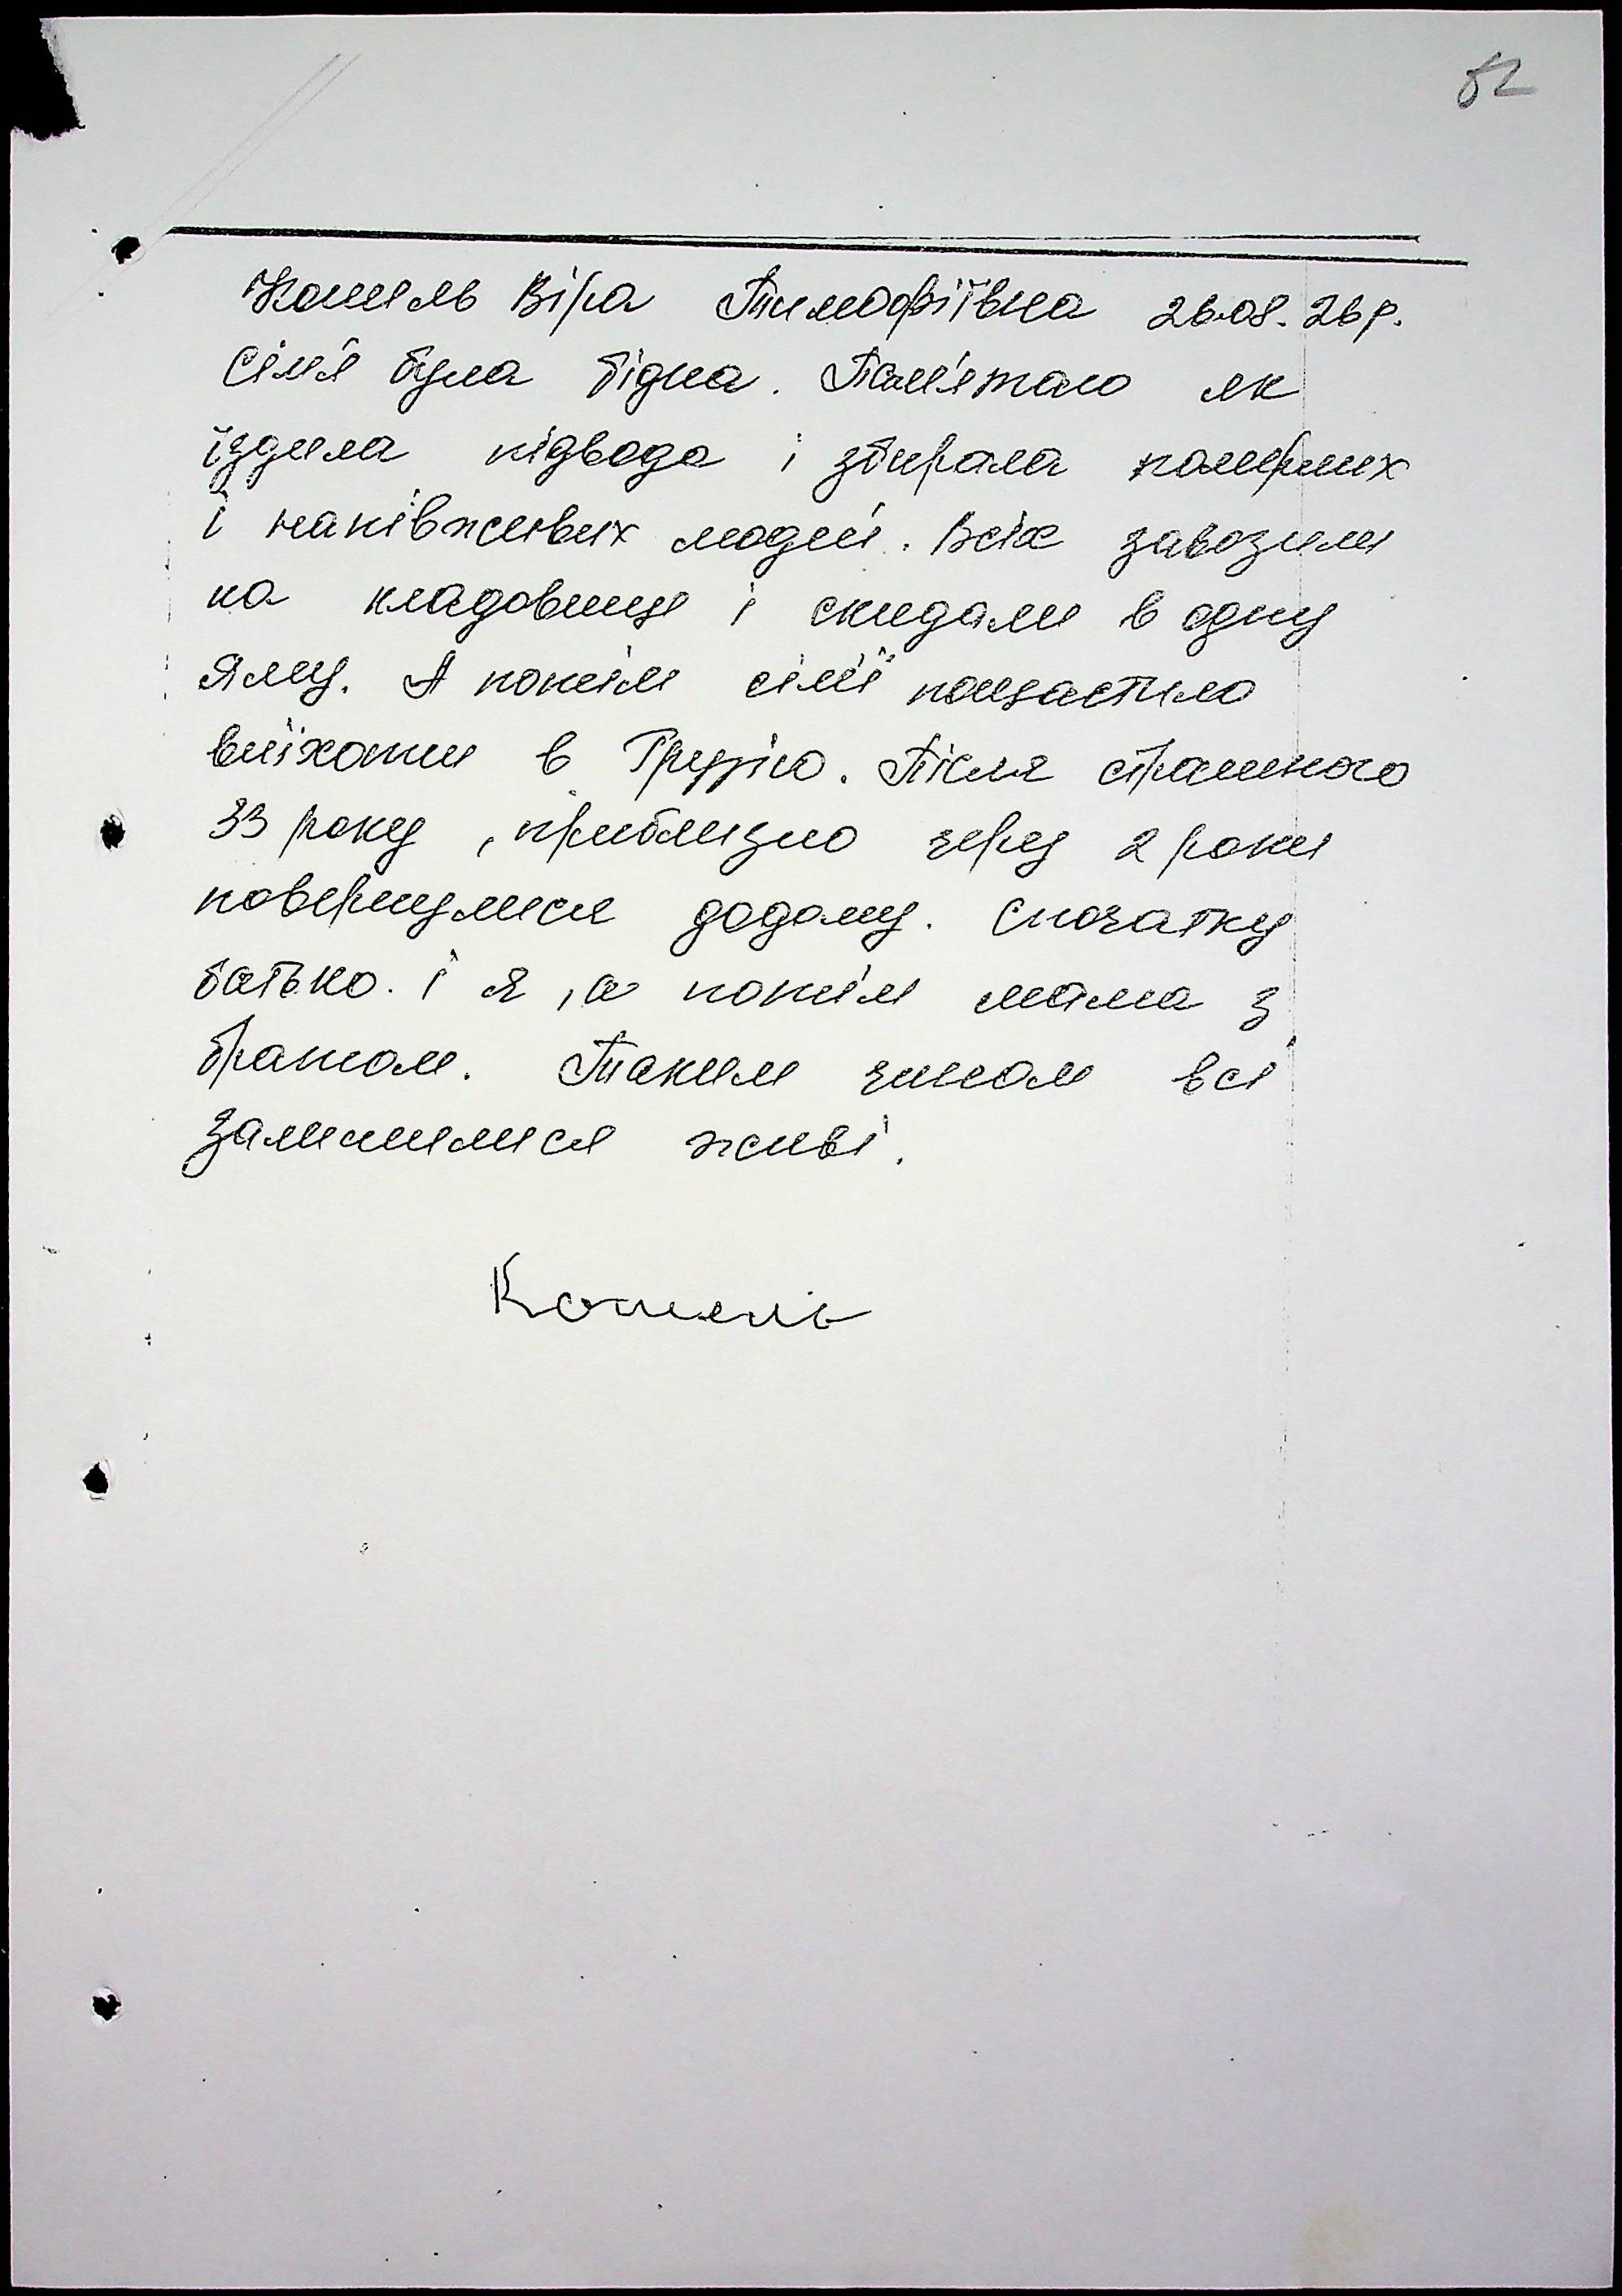 52
Кошель Віра Тимофіївна 26.08.26 р.
Сім'я була бідна. Пам'ятаю як
їздила підвода і збирала померших
і напівживих людей. Всіх завозили
на кладовище і скидали в одну
яму. А потім сім'ї пощастило
виїхати в Грузію. Після страшного
33 року, приблизно через 2 роки
повернулися додому. Спочатку
батько. і я, а потім мама з
братом. Таким чином всі
залишилися живі.
Кошель